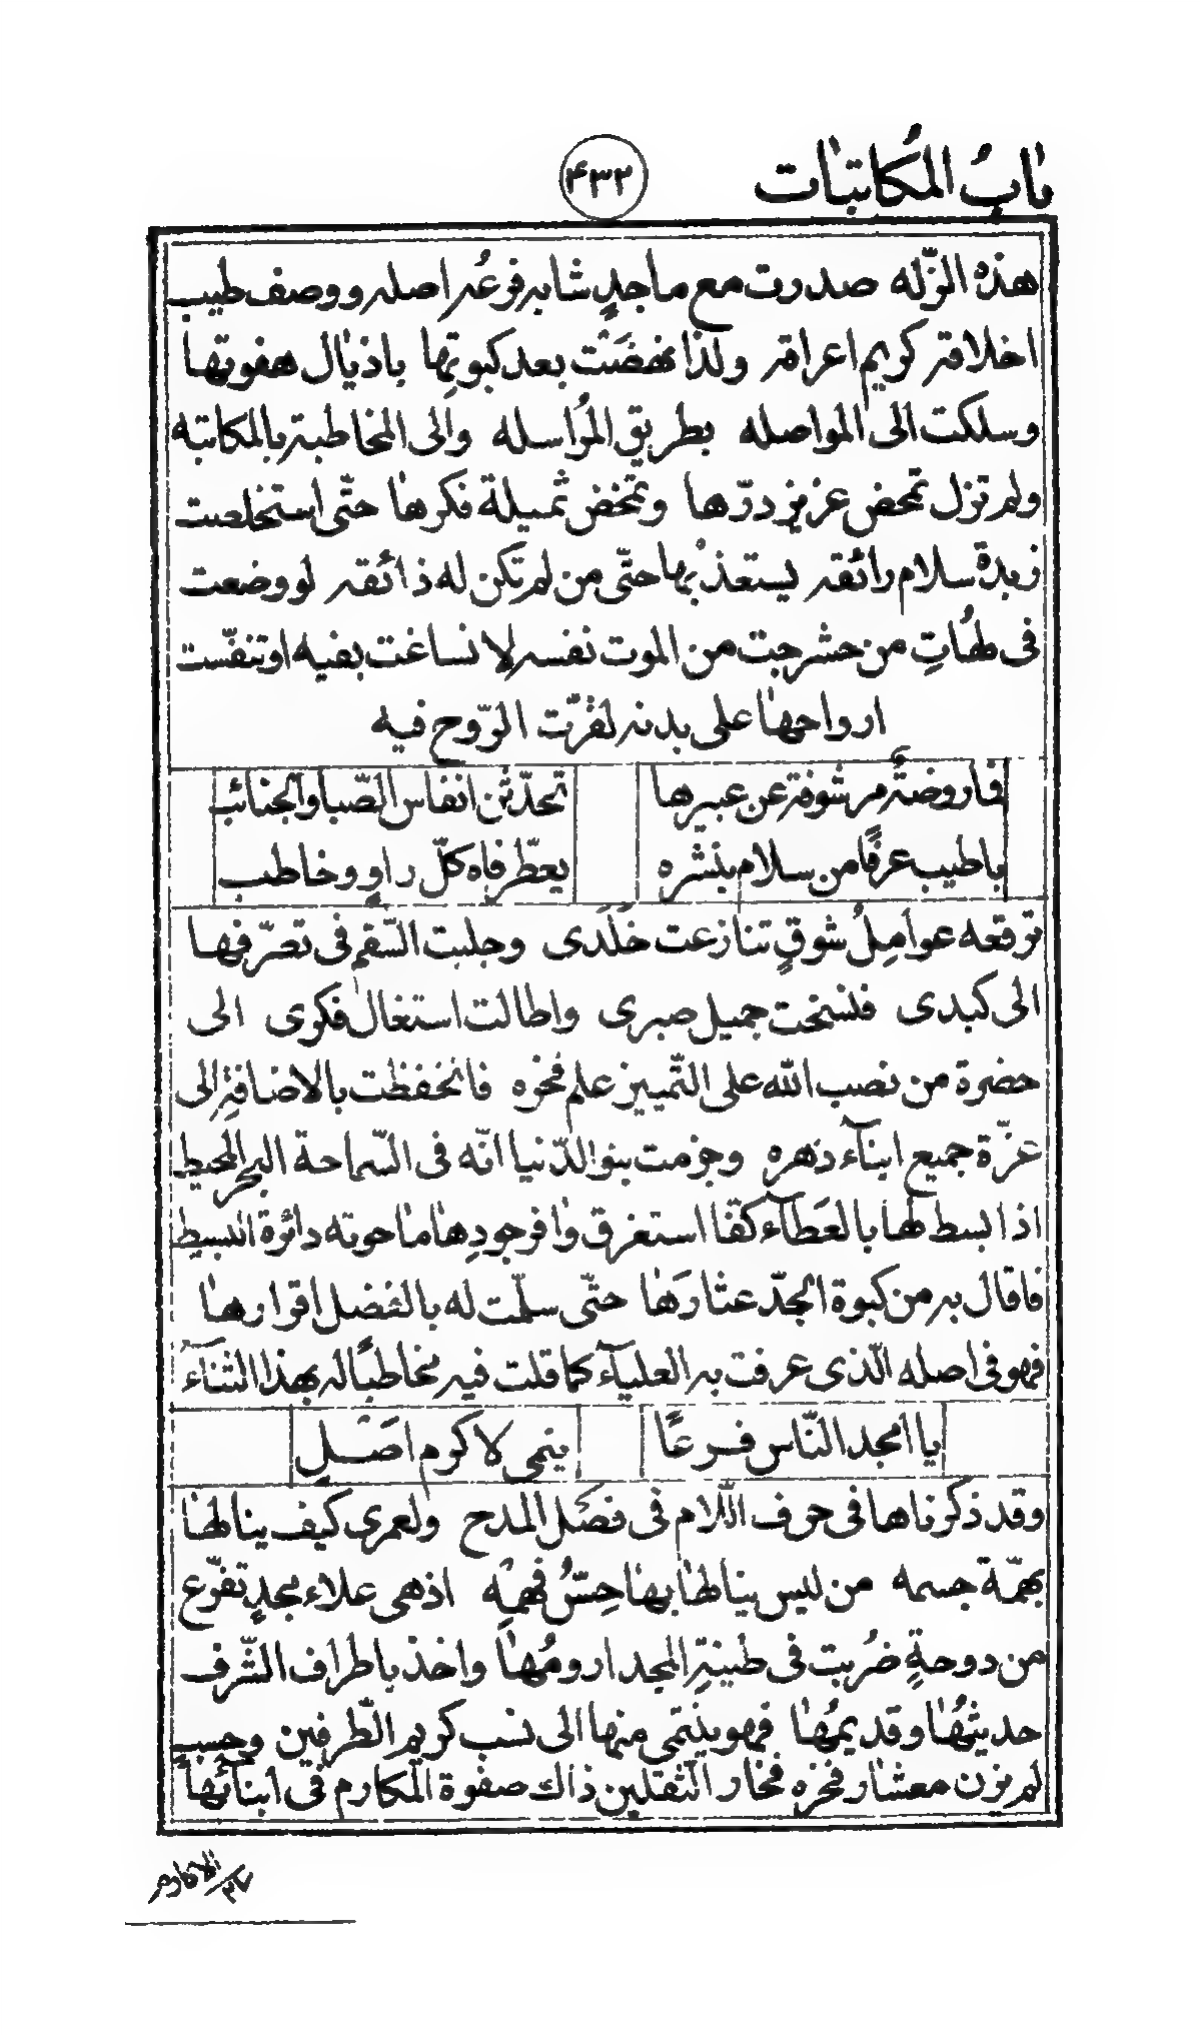 باب المكاتبات
٤٣٢
هذه الزّله صدرت مع ماجدٍ شابه فرعُه اصله ووصف طيب
اخلاقه كريم اعراقه ولذا نهضَت بعد كبوتِها باذيال هفوتها
وسلكت الى المواصله بطريق المُراسله والى المخاطبة بالمكاتبه
ولم تزل تمحض عزيز درّها وتمخض ثميلة فكرها حتّى استخلصت
زبدة سلام رائقه يستعذبُها حتّى من لم تكن له ذائقه لو وضعت
فى لهاتِ من حشرجت من الموت نفسه لانساغت بفيه او تنفّست
ارواحها على بدنه لقرّت الرّوح فيه
فما روضةٌ مرشوفة عن عبيرها تحدّثن انفاس الصّبا والجنائب
باطيب عرفًا من سلام بنشره يعطّر فاه كلّ راوٍ وخاطب
ترفعه عوامِلُ شوقٍ تنازعت خلَدى وجلبت السّقم فى تصرّفها
الى كبدى فنسخت جميل صبرى واطالت استغال فكرى الى
حضرة من نصب الله على التّمييز علم فخره فانخفظت بالاضافةِ الى
عزّة جميع ابنآء دَهره وجزمت بنو الدّنيا انّه فى السّماحة البحر المحيط
اذا بسط لها بالعَطآء كفّا استغرق وافر جودِها ما حوته دائرة البسيط
فاقال به من كبوة الجدّ عثارَها حتّى سلّمت له بالفضل اقرارها
فهو فى اصله الّذى عرفت به العليآء كما قلت فيه مخاطبًا له بهذا الثنآء
يا امجد النّاس فرعًا ينمى لاكرم اصَلِ
وقد ذكرناها فى حرف اللّام فى فصَل المدح ولعمرى كيف ينالها
بهمّة جسمه من ليس ينالها بها حِسّ فهمِه اذ هى علاء مجدٍ تفرّع
من دوحةٍ ضُربت فى طينةِ المجد ارومُها واخذ باطراف الشّرف
حديثُها وقديمُها فهو ينتمى منها الى نسب كريم الطّرفين وحسبٍ
لم يزن معشار فخره فخار الثقلين ذاك صفوة المكارم فى ابنآئها